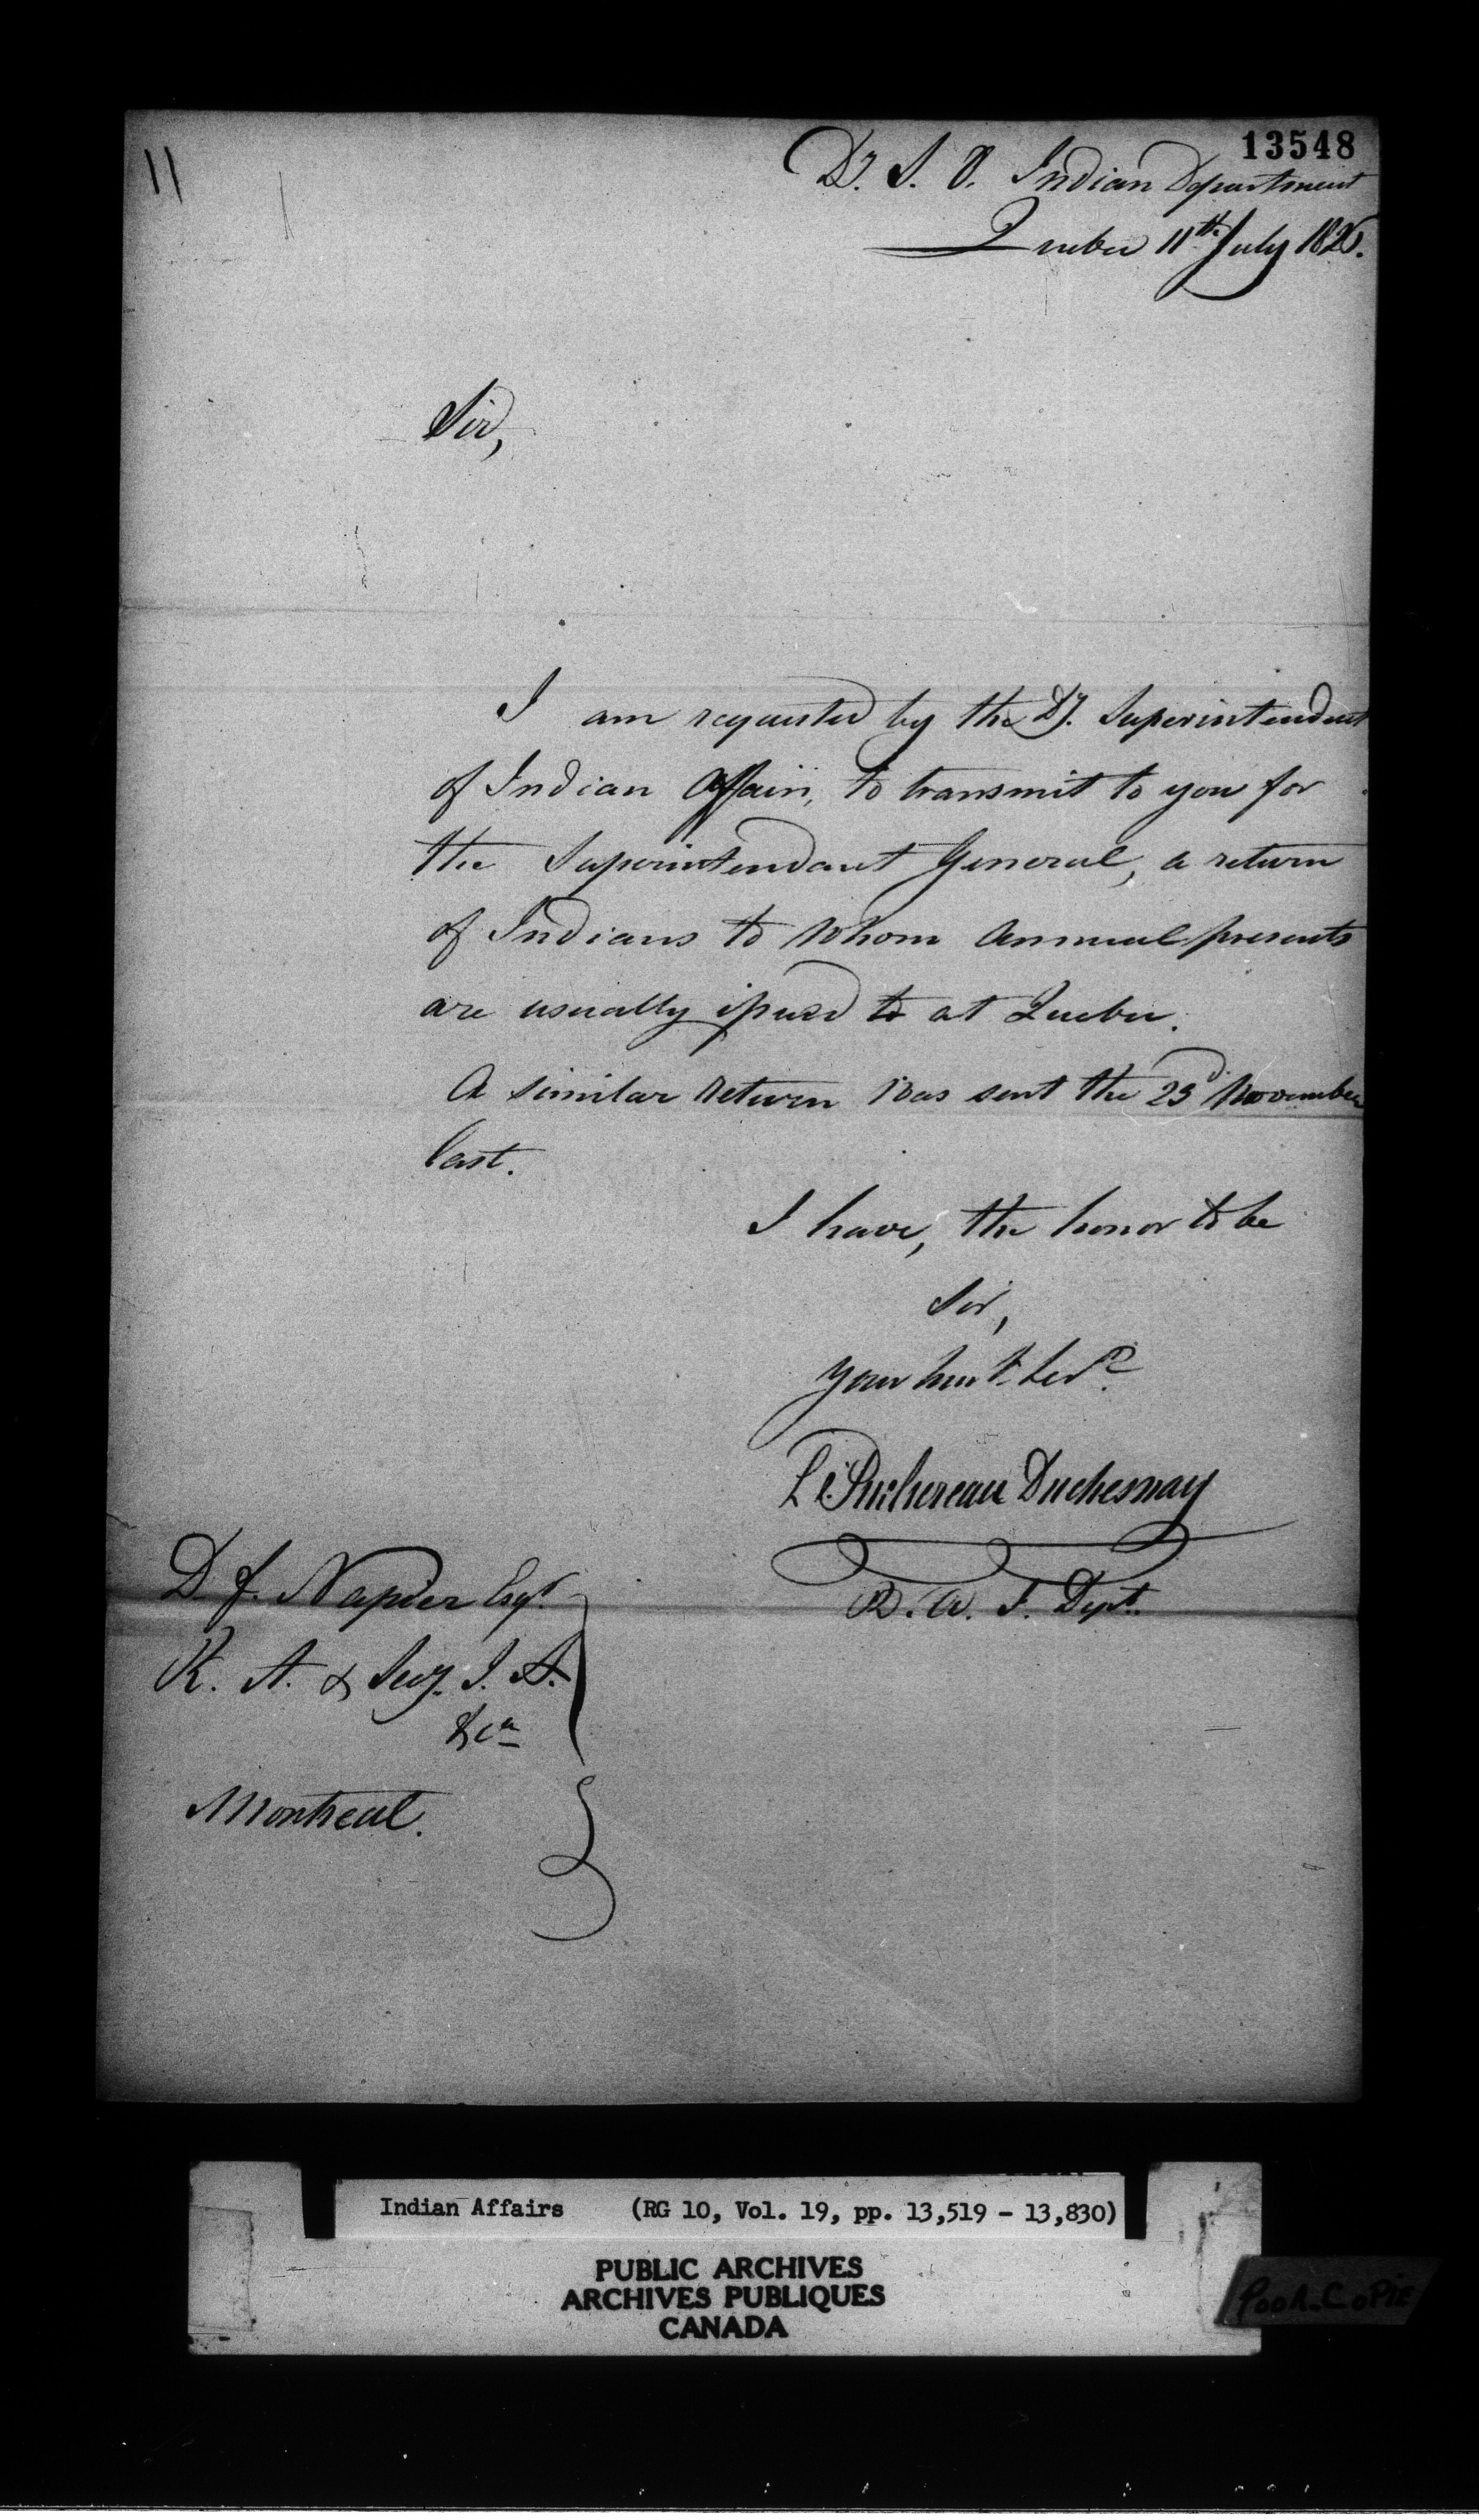 13548
11
Dy. S. O. Indian Department
Quebec 11th July 1826.
Sir,
I am requested by the Dy. Superintendent
of Indian Affairs, to transmit to you for
the Superintendant General, a return
of Indians to whom annual presents
are usually issued to at Quebec.
A similar return was sent the 23d November
last.
I have, the honor to be
Sir,
your hm't. Ser't.
L. Juchereau Duchesnay
R. A. I. Dept.
D. f. Napier Esqr.
R. A. & Secy. I. A.
&ca
Montreal.
Indian Affairs (RG 10, Vol. 19, pp. 13,519 - 13,830)
PUBLIC ARCHIVES
ARCHIVES PUBLIQUES
CANADA
Poor Copie